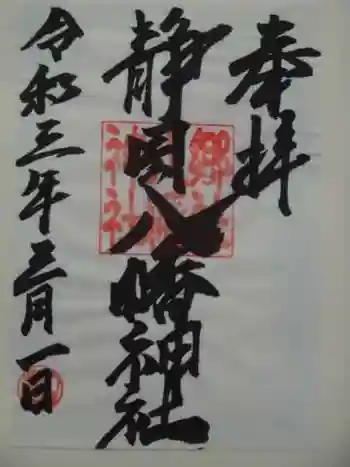 奉拝
静岡八幡神社
令和三年三月一日